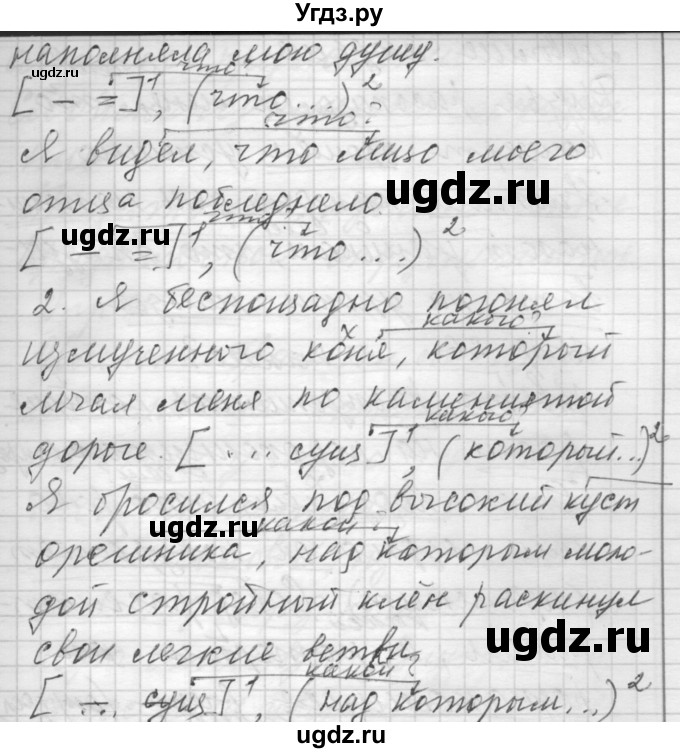 Угдз.ру
наполняла мою душу.
что?
[ – = ]¹, (что...)²
что?
Я видел, что лицо моего
отца побледнело.
что?
[ – = ]¹, (что...)²
2. Я беспощадно погонял
какого?
измученного коня, который
мчал меня по каменистой
какого?
дороге. [ ... сущ ]¹, (который...)²
Я бросился под высокий куст
какой?
орешника, над которым моло-
дой стройный клён раскинул
свои легкие ветви.
какой?
[ – ... сущ ]¹, (над которым...)²
ugdz.ru
ugdz.ru
ugdz.ru
ugdz.ru
ugdz.ru
ugdz.ru
ugdz.ru